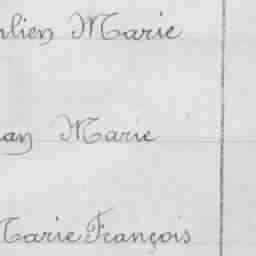 lien Marie
an Marie
Marie François